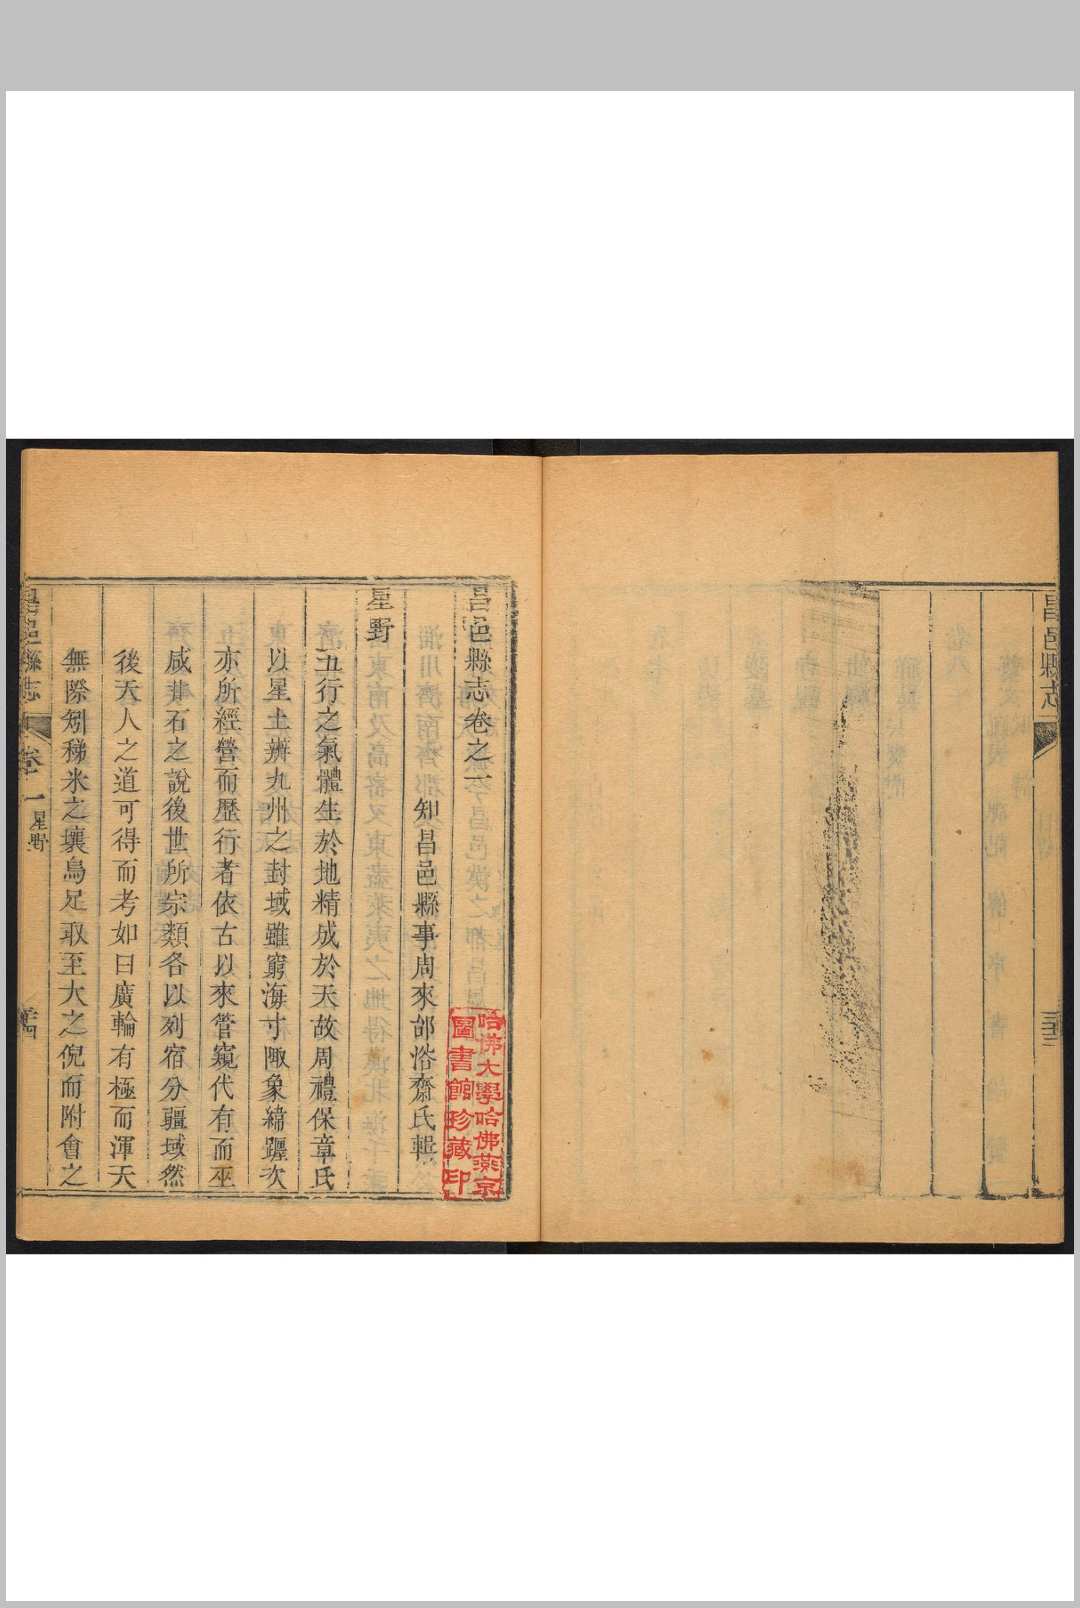 昌邑縣志
三十三
昌邑縣志卷之一
知昌邑縣事周來邰浴齋氏輯
星野
五行之氣體生於地精成於天故周禮保章氏
以星土辨九州之封域雖窮海寸陬象緯躔次
亦所經營而歷行者依古以來管窺代有而巫
咸甘石之說後世所宗類各以列宿分疆域然
後天人之道可得而考如曰廣輪有極而渾天
無際矧稊米之壤鳥足取至大之倪而附會之
昌邑縣志
卷一
星野
哈佛大學哈佛燕京
圖書館珍藏印